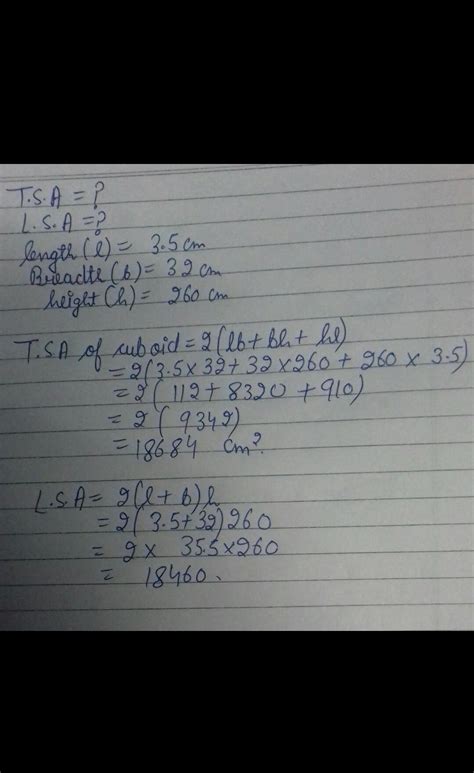 T.S.A = ?
L.S.A = ?
length (l) = 3.5 cm
Breadte (b) = 32 cm
height (h) = 260 cm
T.S.A of cuboid = 2(lb + bh + hl)
= 2(3.5 × 32 + 32 × 260 + 260 × 3.5)
= 2(112 + 8320 + 910)
= 2(9342)
= 18684 cm².
L.S.A = 2(l + b)h
= 2(3.5 + 32)260
= 2 × 35.5 × 260
= 18460.